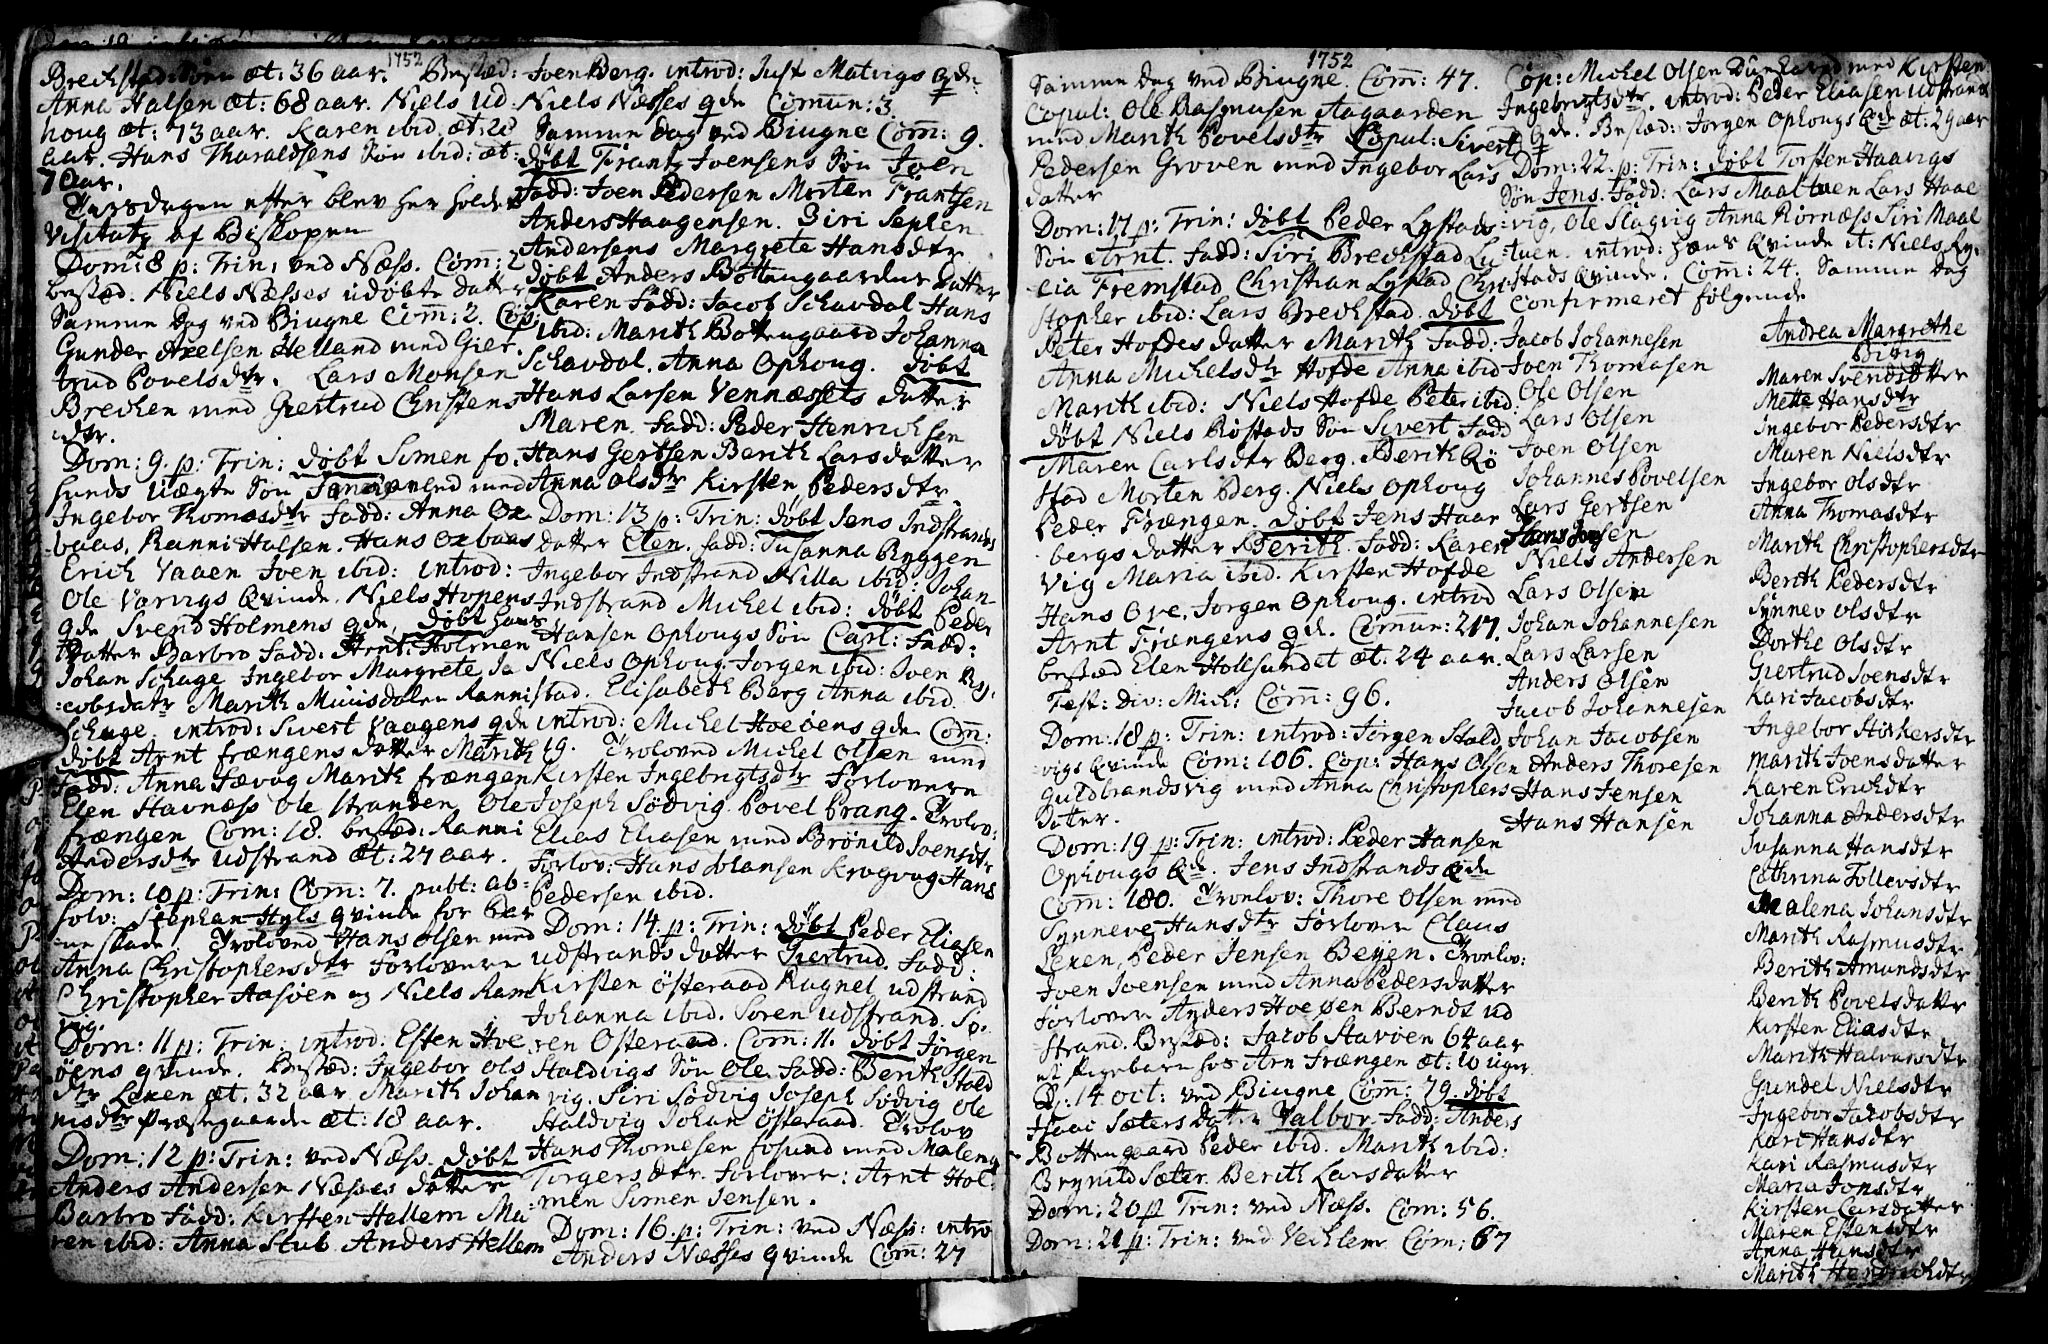 1752
Brechstad Søen æt: 36 aar. Bested:
Anna Halsen æt: 68 aar. Niels Ud:
houg æt: 73 aar. Karen ibid. æt: 28
aar. Hans Tharaldsens Søn ibid: æt:
7 aar.
Tiirsdagen efter blev her holdet
Visitatz af Biskopen
Dom: 8 p: Trin: ved Næss. Com̄: 2
bested. Niels Næsses udøbte datter
Samme dag ved Biugne Com̄: 2. Cop:
Gunder Axelsen Helland med Gier
trud Povelsdtr. Lars Monsen
Brechen med Giertrud Christens
dtr.
Dom: 9. p: Trin: døbt Simen fo,
sunds uægte Søn med
Ingebor Thomasdtr Fadd: Anna Ox
baas, Ranni Halsen. Hans Oxbaas
Erich Vaaen Joen ibid: introd:
Ole Varvigs Qvinde. Niels Hopens
qde Svend Holmens qde, døbt Hans
datter Barbro Fadd: Arnt Holmen
Johan Schage Ingebor Margrete Ja
cobsdatr Marith Miinsdalen Ranni
Schage, introd: Sivert Vaagens qde
døbt Arnt frængens datter Marith
Fadd: Anna Sævog Marith frængen
Elen Havnæss Ole Stranden Ole
frængen Com: 18. bested: Ranni
Andersdtr Udstrand æt: 27 aar.
Dom: 10 p: Trin: Com̄: 7. publ: ab=
solv: Stephan Hyls qvinde for bar
ne skade. Troloved Hans Olsen med
Anna Christophersdtr Forlovere
Christopher Aasøen og Niels Ram
vig.
Dom: 11 p: Trin: introd: Esten Hve
øens qvinde. Bested: Ingebor Ols
dtr Lexen æt. 32 aar Marith Johan
nisdtr Præstegaarden æt: 18 aar.
Dom: 12 p: Trin: ved Næss. døbt
Anders Andersen Næsses datter
Barbro Fadd: Kirsten Hellem Ma=
ren ibid: Anna Stub Anders Hellem
Joen Berg. introd: Just Matvigs qde
Niels Næsses qde Com̄un: 3.
Samme dag ved Biugne Com̄: 9.
døbt Frantz Joensens Søn Joen
Fadd: Joen Pedersen Morten Frantsen
Anders Haagensen. Siri Sephen
Andersens Margrete Hansdtr
døbt Anders Bottengaardens datter
Karen Fadd: Jacob Schavdal Hans
ibid: Marith Bottengaard Johanna
Schavdal. Anna Ophoug. døbt
Hans Larsen Vennæssets datter
Maren. Fadd: Peder Henrichsen
Hans Gertsen Berith Larsdatter
Anna Olsdtr Kirsten Pedersdtr
Dom: 13 p: Trin: døbt Jens Indstrands
datter Elen. fadd: Susanna Ryggen
Ingebor Indstrand Nilla ibid: Johan
Indstrand Michel ibid: døbt Peder
Hansen Ophougs Søn Carl: Fadd:
Niels Ophoug Jorgen ibid: Joen Ry,
stad. Elisabeth Berg Anna ibid.
introd: Michel Hoeøens qde Com̄:
19. Troloved Michel Olsen med
Kirsten Ingebrigtsdtr Forlovere
Joseph Sødvig Povel Prang. Trolov:
Elias Eliasen med Brønild Joensdtr
Forlov: Hans Johansen Krogvog Hans
Pedersen ibid.
Dom: 14. p: Trin: døbt Peder Eliasen
udstrands datter Giertrud. Fadd:
Kirsten Østeraad Ragnel udstrand
Johanna ibid. Soren udstrand. So.
ren Osteraad. Com: 11. døbt Jørgen
Staldvigs Søn Ole Fadd: Berith Stald
vig. Siri Sødvig Joseph Sødvig Ole
Staldvig Johan Østeraad. Trolov
Hans Thomesen fosund med Malena
Torgersdtr. Forlover: Arnt Hol=
men Simen Jensen.
Dom: 16. p: Trin: ved Næss: intro
Anders Næsses qvinde Com̄: 27
1752
Samme dag ved Biugne Com̄: 47.
Copul: Ole Rasmusen Aagaarden
med Marith Povelsdtr Copul: Sivert
Pedersen Groven med Ingebor Lars
datter
Dom: 17 p: Trin: døbt Peder Lystads
Søn Arnt. Fadd: Siri Brechstad Lu
cia Fremstad Christian Lystad Chri
stopher ibid: Lars Brechstad. døbt
Peter Hofdes datter Marith Fadd:
Anna Michelsdtr Hofde Anna ibid
Marith ibid: Niels Hofde Peter ibid:
døbt Niels Røstads Søn Sivert Fadd
Maren Carlsdtr Berg. Berith Rø
stad Morten Berg. Niels Ophoug
Peder Frængen. døbt Jens Haar
bergs datter Berith. Fadd: Karen
Vig Maria ibid. Kirsten Hofde
Hans Ove. Jorgen Ophoug. introd
Arnt Frængens qd. Com̄un: 217.
bested Elen Hollsundet æt. 24 aar.
Fest: Div: Mich: Com̄: 96.
Dom: 18 p: Trin: introd: Jørgen Stald
vigs Qvinde Com: 106. Cop: Hans Olsen
Guldbrandsvig med Anna Christophers
datter.
Dom: 19 p: Trin: introd: Peder Hansen
Ophougs Qd. Jens Indstrands Qde
Com̄: 180. Tronlov: Thore Olsen med
Synneve Hansdtr Forlover Claus
Lexen, Peder Jensen Beyen. Tronlov:
Joen Joensen med Anna Pedersdatter
Forlover Anders Hoeøen Berndt ud
strand. Bested: Jacob Stavøen 64 aar
et Pigebarn hos Arn Frængen æt: 10 uger.
D: 14 oct: ved Biugne Com̄: 29. døbt
Isaac Sæters datter Valbor. Fadd: Anders
Bottengaard Peder ibid. Marith ibid:
Brynild Sæter. Berith Larsdatter
Dom: 20 p Trin: ved Næss. Com: 56.
Dom: 21 p: Trin: ved Vechlem Com̄: 67
Cop: Michel Olsen Dunhavn med Kirsten
Ingebrigtsdtr. introd: Peder Eliasen udstrands
qde. Bested: Jorgen Ophougs Qde æt: 29 aar
Dom: 22. p: Trin: døbt Torsten Haavigs
Søn Jens. Fadd: Lars Maaltuen Lars Haae
vig, Ole Slagvig Anna Rørnæss Siri Maal
tuen. introd: Hans Qvinde it: Niels Ry.
stads Qvinde. Com̄: 24. Samme dag
Confirmeret følgende
Jacob Johannesen
Joen Thomasen
Ole Olsen
Lars Olsen
Joen Olsen
Johannes Povelsen
Lars Gertsen
Hans Joensen
Niels Andersen
Lars Olsen
Johan Johannesen
Lars Larsen
Anders Olsen
Jacob Johannesen
Johan Jacobsen
Anders Thoresen
Hans Jensen
Hans Hansen
Andrea Margrethe
Bing
Maren Svendsdtter
Mette Hansdtr
Ingebor Pedersdtr
Maren Nielsdtr
Ingebor Olsdtr
Anna Thomasdtr
Marith Christophersdtr
Berith Pedersdtr
Synnev Olsdtr
Dorthe Olsdtr
Giertrud Joensdtr
Kari Jacobsdtr
Ingebor Størkersdtr
Marith Joensdatter
Karen Erichdtr
Johanna Andersdtr
Susanna Hansdtr
Cathrina Tollevsdtr
Malena Johansdtr
Marith Rasmusdtr
Berith Amundsdtr
Berith Povelsdatter
Kirsten Eliasdtr
Marith Halvorsdtr
Gundel Nielsdtr
Ingebor Jacobsdtr
Kari Hansdtr
Kari Rasmusdtr
Maria Jonsdtr
Kirsten Larsdatter
Maren Estensdtr
Anna Hansdtr
Marith Hendrichdtr